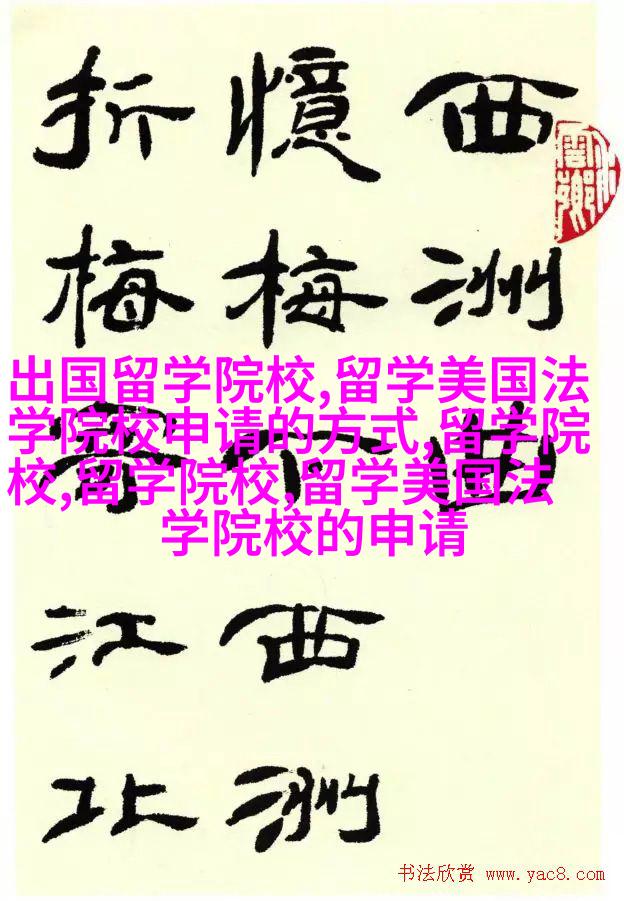 西洲曲
憶梅下西洲
折梅寄江北
出国留学院校,留学美国法
学院校申请的方式,留学院
校,留学院校,留学美国法
学院校的申请
书法欣赏 www.yac8.com